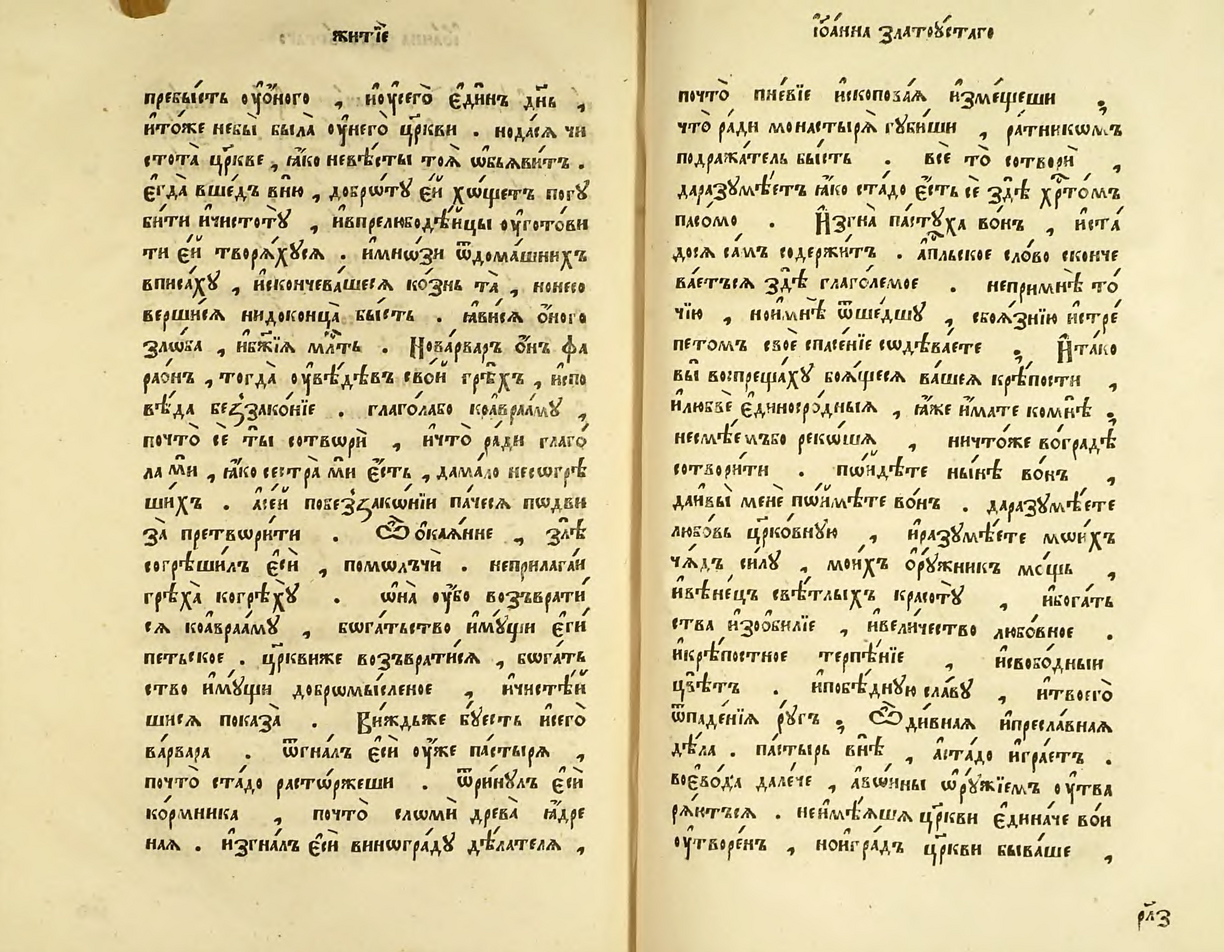 житїе
пребы́сть оу҆о́ного , и҆оу҆сего̀ є҆ди́нъ дн҃ь ,
и҆то́же небы̀ была̀ оу҆него̀ цр҃кви . нода́сѧ чи
стота̀ цр҃кве , ꙗ҆́ко неве́сты тоѧ̀ ѡ҆бьѧви́тъ .
є҆гда̀ вше́дъ вню̀ , добрѡ́тꙋ є҆́й хѡ́щетъ погꙋ
би́ти и҆чистотꙋ̀ , и҆впрелюбодѣ́йцы оу҆гото́ви
ти є҆́й творѧ́хꙋсѧ . и҆мнѡ́зи ѿдома́шнихъ
вписа́хꙋ , и҆скончева́шесѧ ко́знь та̀ , нонесо
верши́сѧ нидоконца̀ бы́сть . ꙗ҆ви́сѧ ѻ҆́ного
ѕло́ба , и҆бж҃їѧ млⷭ҇ть . Нова́рваръ ѻ҆́нъ фа
раѡ́нъ , тогда̀ оу҆вѣ́дѣвъ сво́й грѣ́хъ , и҆спо
вѣ́да безⸯзако́нїе . глаго́лабо коа҆враа́мꙋ ,
почто̀ сѐ ты̀ сотвори̂ , и҆что̀ ра́ди глаго́
ла мѝ , ꙗ҆́ко сестра̀ мѝ є҆́сть , дама́ло несогрѣ
ши́хъ . а҆се́й побеззⸯако́нїи па́чесѧ пѡдви
за̀ претвори́ти . Ѽѻ҆кая́нне , ѕлѣ̀
согрѣши́лъ є҆сѝ , помѡлъчѝ . неприлага́й
грѣха̀ когрѣхꙋ̀ . ѡ҆на̀ оу҆́бо возъврати́
сѧ коа҆враа́мꙋ , бѡга́тьство и҆мꙋ́щи є҆гі́
петьское . цр҃квиже возъврати́сѧ , бѡга́ть
ство и҆мꙋ́щи добрѡмы́сленое , и҆чистѣ́й
шисѧ показа̀ . Ви́ждьже бꙋ́есть и҆сего̀
ва́рвара . ѿгна́лъ є҆сѝ оу҆́же па́стырѧ ,
почто̀ ста́до расто́ржеши . ѿри́нꙋлъ є҆сѝ
ко́рмника , почто̀ сломѝ дрѐва ꙗ҆́дре
наѧ . и҆згна́лъ є҆сѝ виногра́дꙋ дѣ́лателѧ ,
і҆ѡа́нна златоꙋ́стаго
почто̀ пне́вїе и҆скопо́заѧ и҆зме́щеши ;
что̀ ра́ди монастырѧ̀ гꙋ́биши , ра́тникѡмъ
подража́тель бы́сть . всѐ то̀ сотворѝ ,
даразꙋмѣ́етъ ꙗ҆́ко ста́до є҆́сть сѐ здѣ̀ хрⷭ҇то́мъ
пасо́мо . И҆згна̀ пастꙋха̀ во́нъ , и҆ста́
досѧ са́мъ содержи́тъ . а҆пⷭ҇льское сло́во сконче
ва́етъсѧ здѣ̀ глаго́лемое . непримнѣ̀ то́
чїю , ноимнѣ̀ ѿше́дшꙋ , сбоѧ́знїю и҆стре́
петомъ своѐ спасе́нїе содѣва́ете ; И҆та́ко
вы̀ возпреща́хꙋ боѧ́щесѧ ва́шеѧ крѣ́пости ,
и҆любвѐ є҆диноро́дныѧ , ꙗ҆́же и҆́мате комнѣ̀ ;
несмѣ́емъбо реко́шѧ , ничто́же вогра́дѣ
сотвори́ти . пѡи҆дѣ́те ны́нѣ во́нъ ,
даивы̀ менѐ пѡи҆мѣ́те во́нъ . даразꙋмѣ́ете
любо́вь цр҃ко́внꙋю , и҆разꙋмѣ́ете мѡи́хъ
ча́дъ си́лꙋ , мои́хъ ѻ҆рꙋ́жникъ мо́щь ,
и҆вѣне́цъ свѣ́тлыхъ красотꙋ̀ , и҆бога́ть
ства и҆зоби́лїе , и҆вели́чество любо́вное .
и҆крѣ́постное терпѣ́нїе , и҆свобо́дныи
цвѣ́тъ . и҆побѣ́днꙋю сла́вꙋ , и҆твоего̀
ѿпаде́нїѧ рꙋ́гъ ; Ѽди́внаѧ и҆пресла́внаѧ
дѣ́ла . па́стырь внѣ̀ , а҆ста́до и҆гра́етъ .
воево́да дале́че , а҆во́ины ѡ҆рꙋ́жїемъ оу҆тва
рѧ́ютъсѧ . неимѣ́ѧшѧ цр҃кви є҆дина́че во́и
оу҆творе́нъ , нои҆гра́дъ цр҃кви быва́ше ,
рл҃з